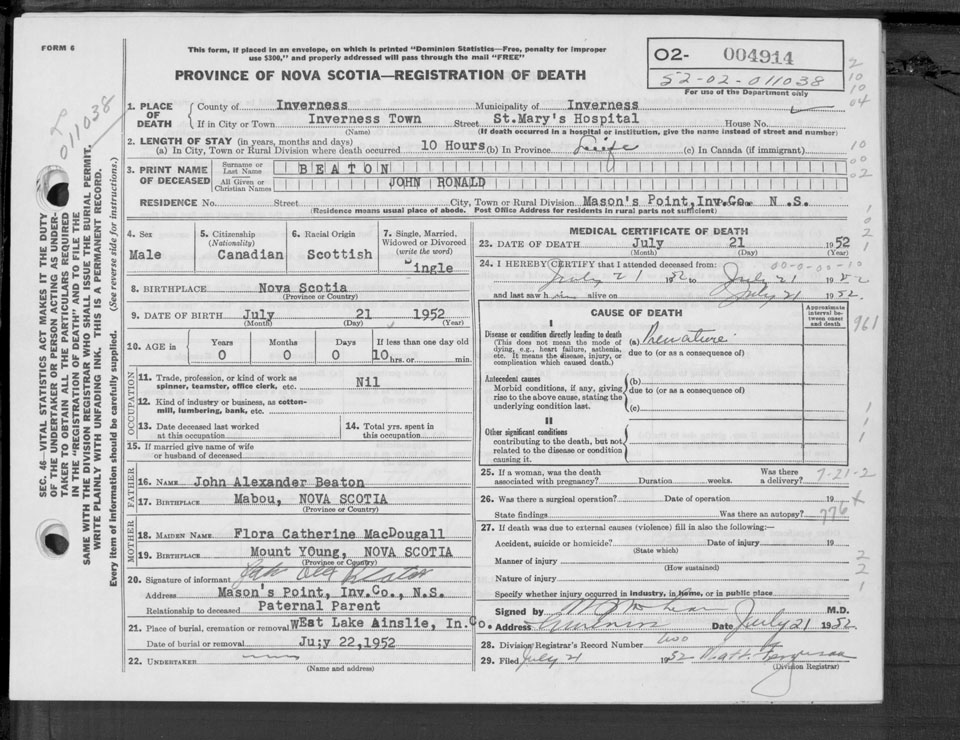 FORM 6
This form, if placed in an envelope, on which is printed "Dominion Statistics—Free, penalty for improper
use $300," and properly addressed will pass through the mail "FREE"
PROVINCE OF NOVA SCOTIA—REGISTRATION OF DEATH
02- 004914
52-02-011038
For use of the Department only
011038
SEC. 46—VITAL STATISTICS ACT MAKES IT THE DUTY
OF THE UNDERTAKER OR PERSON ACTING AS UNDER-
TAKER TO OBTAIN ALL THE PARTICULARS REQUIRED
IN THE "REGISTRATION OF DEATH" AND TO FILE THE
SAME WITH THE DIVISION REGISTRAR WHO SHALL ISSUE THE BURIAL PERMIT.
WRITE PLAINLY WITH UNFADING INK. THIS IS A PERMANENT RECORD.
Every item of information should be carefully supplied. (See reverse side for instructions.)
1. PLACE OF DEATH
County of Inverness Municipality of Inverness
If in City or Town Inverness Town Street St.Mary's Hospital House No.
(Name) (If death occurred in a hospital or institution, give the name instead of street and number)
2. LENGTH OF STAY (in years, months and days)
(a) In City, Town or Rural Division where death occurred 10 Hours (b) In Province Life (c) In Canada (if immigrant)
3. PRINT NAME OF DECEASED
Surname or Last Name BEATON
All Given or Christian Names JOHN RONALD
RESIDENCE No. Street City, Town or Rural Division Mason's Point,Inv.Co. N.S.
(Residence means usual place of abode. Post Office Address for residents in rural parts not sufficient)
4. Sex
Male
5. Citizenship
(Nationality)
Canadian
6. Racial Origin
Scottish
7. Single, Married,
Widowed or Divorced
(write the word)
Single
8. BIRTHPLACE Nova Scotia
(Province or Country)
9. DATE OF BIRTH July 21 1952
(Month) (Day) (Year)
10. AGE is Years Months Days If less than one day old
0 0 0 10 hrs. or min.
OCCUPATION
11. Trade, profession, or kind of work as
spinner, teamster, office clerk, etc. Nil
12. Kind of industry or business, as cotton-
mill, lumbering, bank, etc.
13. Date deceased last worked
at this occupation
14. Total yrs. spent in
this occupation
15. If married give name of wife
or husband of deceased
FATHER
16. NAME John Alexander Beaton
17. BIRTHPLACE Mabou, NOVA SCOTIA
(Province or Country)
MOTHER
18. MAIDEN NAME Flora Catherine MacDougall
19. BIRTHPLACE Mount Y0ung, NOVA SCOTIA
(Province or Country)
20. Signature of informant Beaton
Address Mason's Point, Inv.Co., N.S.
Relationship to deceased Paternal Parent
21. Place of burial, cremation or removal wEst Lake Ainslie, In.Co.
Date of burial or removal Ju;y 22,1952
22. UNDERTAKER
(Name and address)
MEDICAL CERTIFICATE OF DEATH
23. DATE OF DEATH July 21 1952
(Month) (Day) (Year)
24. I HEREBY CERTIFY that I attended deceased from:
July 21 1952 to July 21 1952
and last saw him alive on July 21 1952
CAUSE OF DEATH
Approximate
interval be-
tween onset
and death
I
Disease or condition directly leading to death
(This does not mean the mode of
dying, e.g., heart failure, asthenia,
etc. It means the disease, injury, or
complication which caused death.)
(a) Premature
due to (or as a consequence of)
Antecedent causes
Morbid conditions, if any, giving
rise to the above cause, stating the
underlying condition last.
(b)
due to (or as a consequence of)
(c)
II
Other significant conditions
contributing to the death, but not
related to the disease or condition
causing it.
25. If a woman, was the death
associated with pregnancy? Duration weeks. Was there
a delivery?
7-21-2
26. Was there a surgical operation? Date of operation 19
State findings Was there an autopsy?
776
27. If death was due to external causes (violence) fill in also the following:—
Accident, suicide or homicide? Date of injury 19
(State which)
Manner of injury
(How sustained)
Nature of injury
Specify whether injury occurred in industry, in home, or in public place
Signed by M.D.
Address Inverness Date July 21 1952
28. Division Registrar's Record Number
29. Filed July 21 1952 Ferguson
(Division Registrar)
961